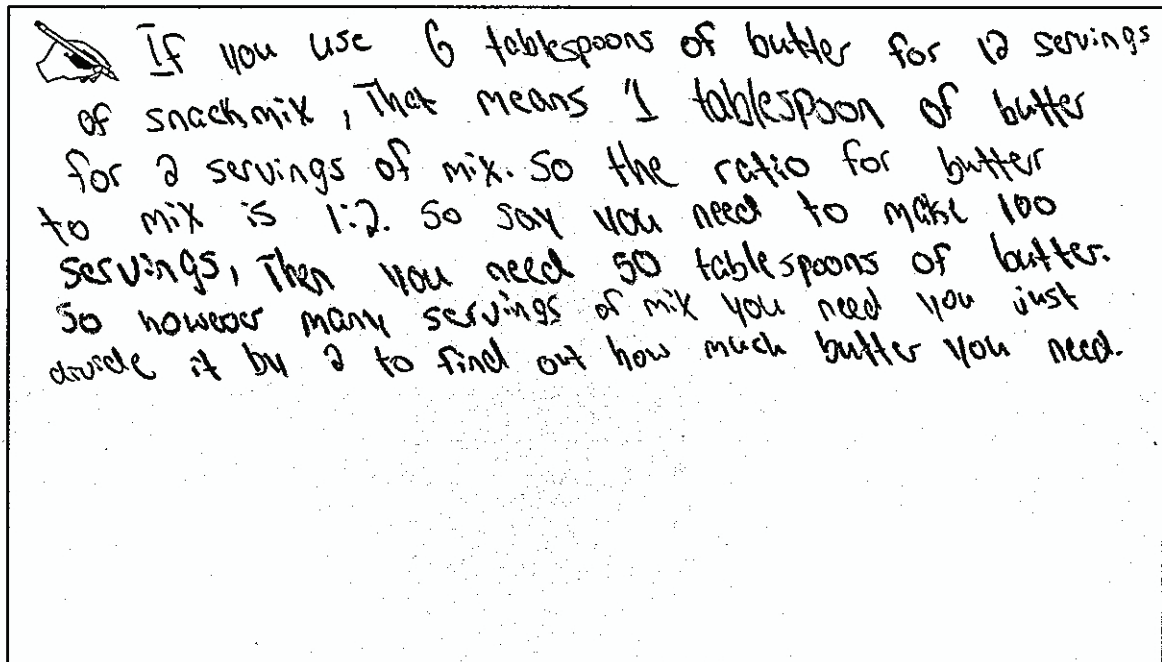 If you use 6 tablespoons of butter for 12 servings
of snack mix, That means 1 tablespoon of butter
for 2 servings of mix. So the ratio for butter
to mix is 1:2. So say you need to make 100
servings, Then you need 50 tablespoons of butter.
So however many servings of mix you need you just
divide it by 2 to find out how much butter you need.